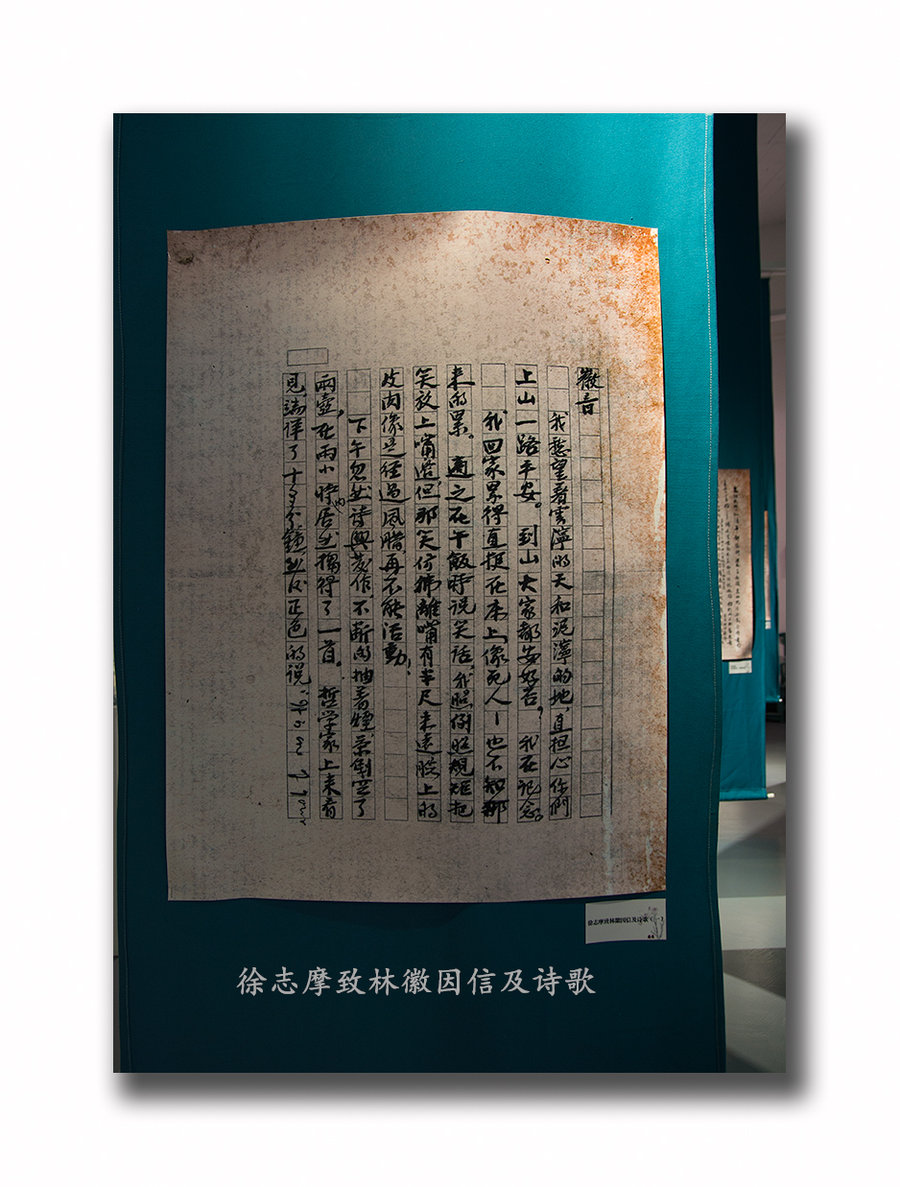 徽音
我愁望着雲濘的天和泥濘的地，直担心你們
上山一路平安。到山大家都安好否？我在記念。
我回家累得直挺在床上，像死人——也不知那
来的累。適之在午飯時说笑话，我照例照規矩把
笑放上嘴邊，但那笑仿彿離嘴有半尺来遠，臉上的
皮肉像是经過風腊再不能活動！
下午忽然诗興發作，不断的抽着煙，茶倒空了
兩壺，在兩小時内，居然謅得了一首。哲学家上来看
見，端详了十多分鐘，然後正色的说
徐志摩致林徽因信及诗歌（一）
徐志摩致林徽因信及诗歌